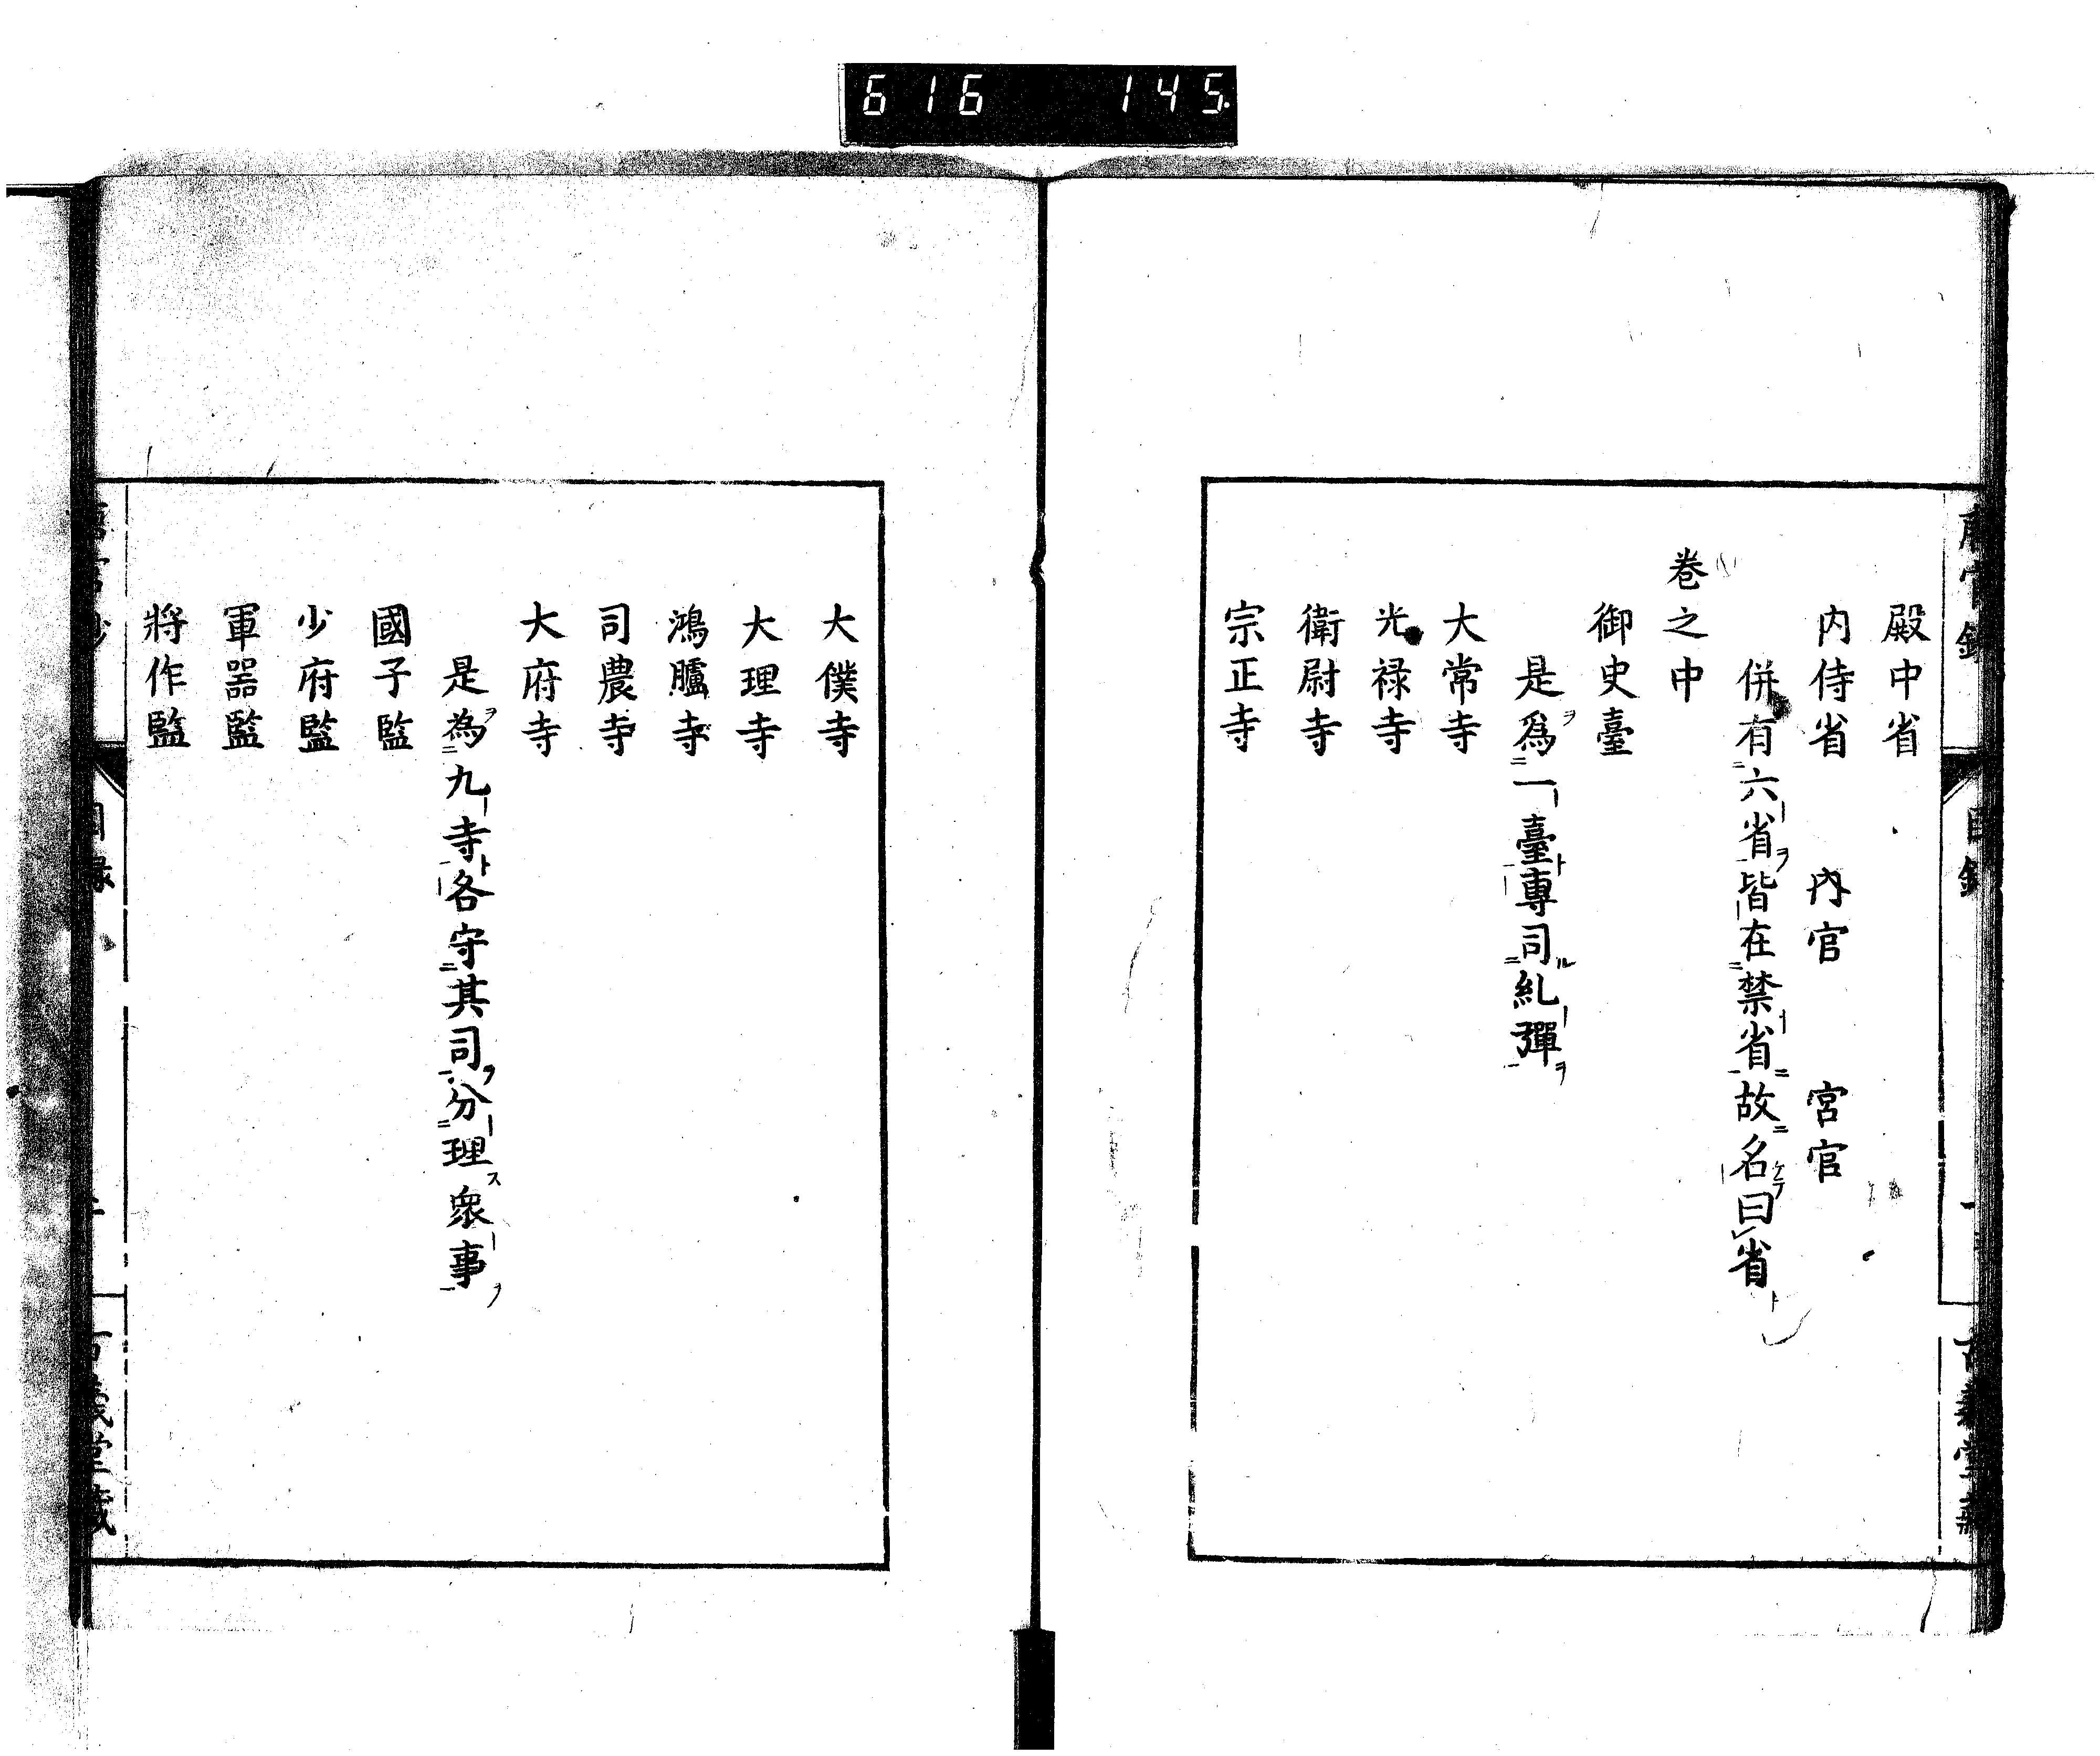 616 145
殿中省
内侍省 内官 宮官
併有六省皆在禁省故名曰省
巻之中
御史臺
是爲一臺專司糺彈
大常寺
光禄寺
衛尉寺
宗正寺
大僕寺
大理寺
鴻臚寺
司農寺
大府寺
是為九寺各守其司分理衆事
國子監
少府監
軍器監
將作監